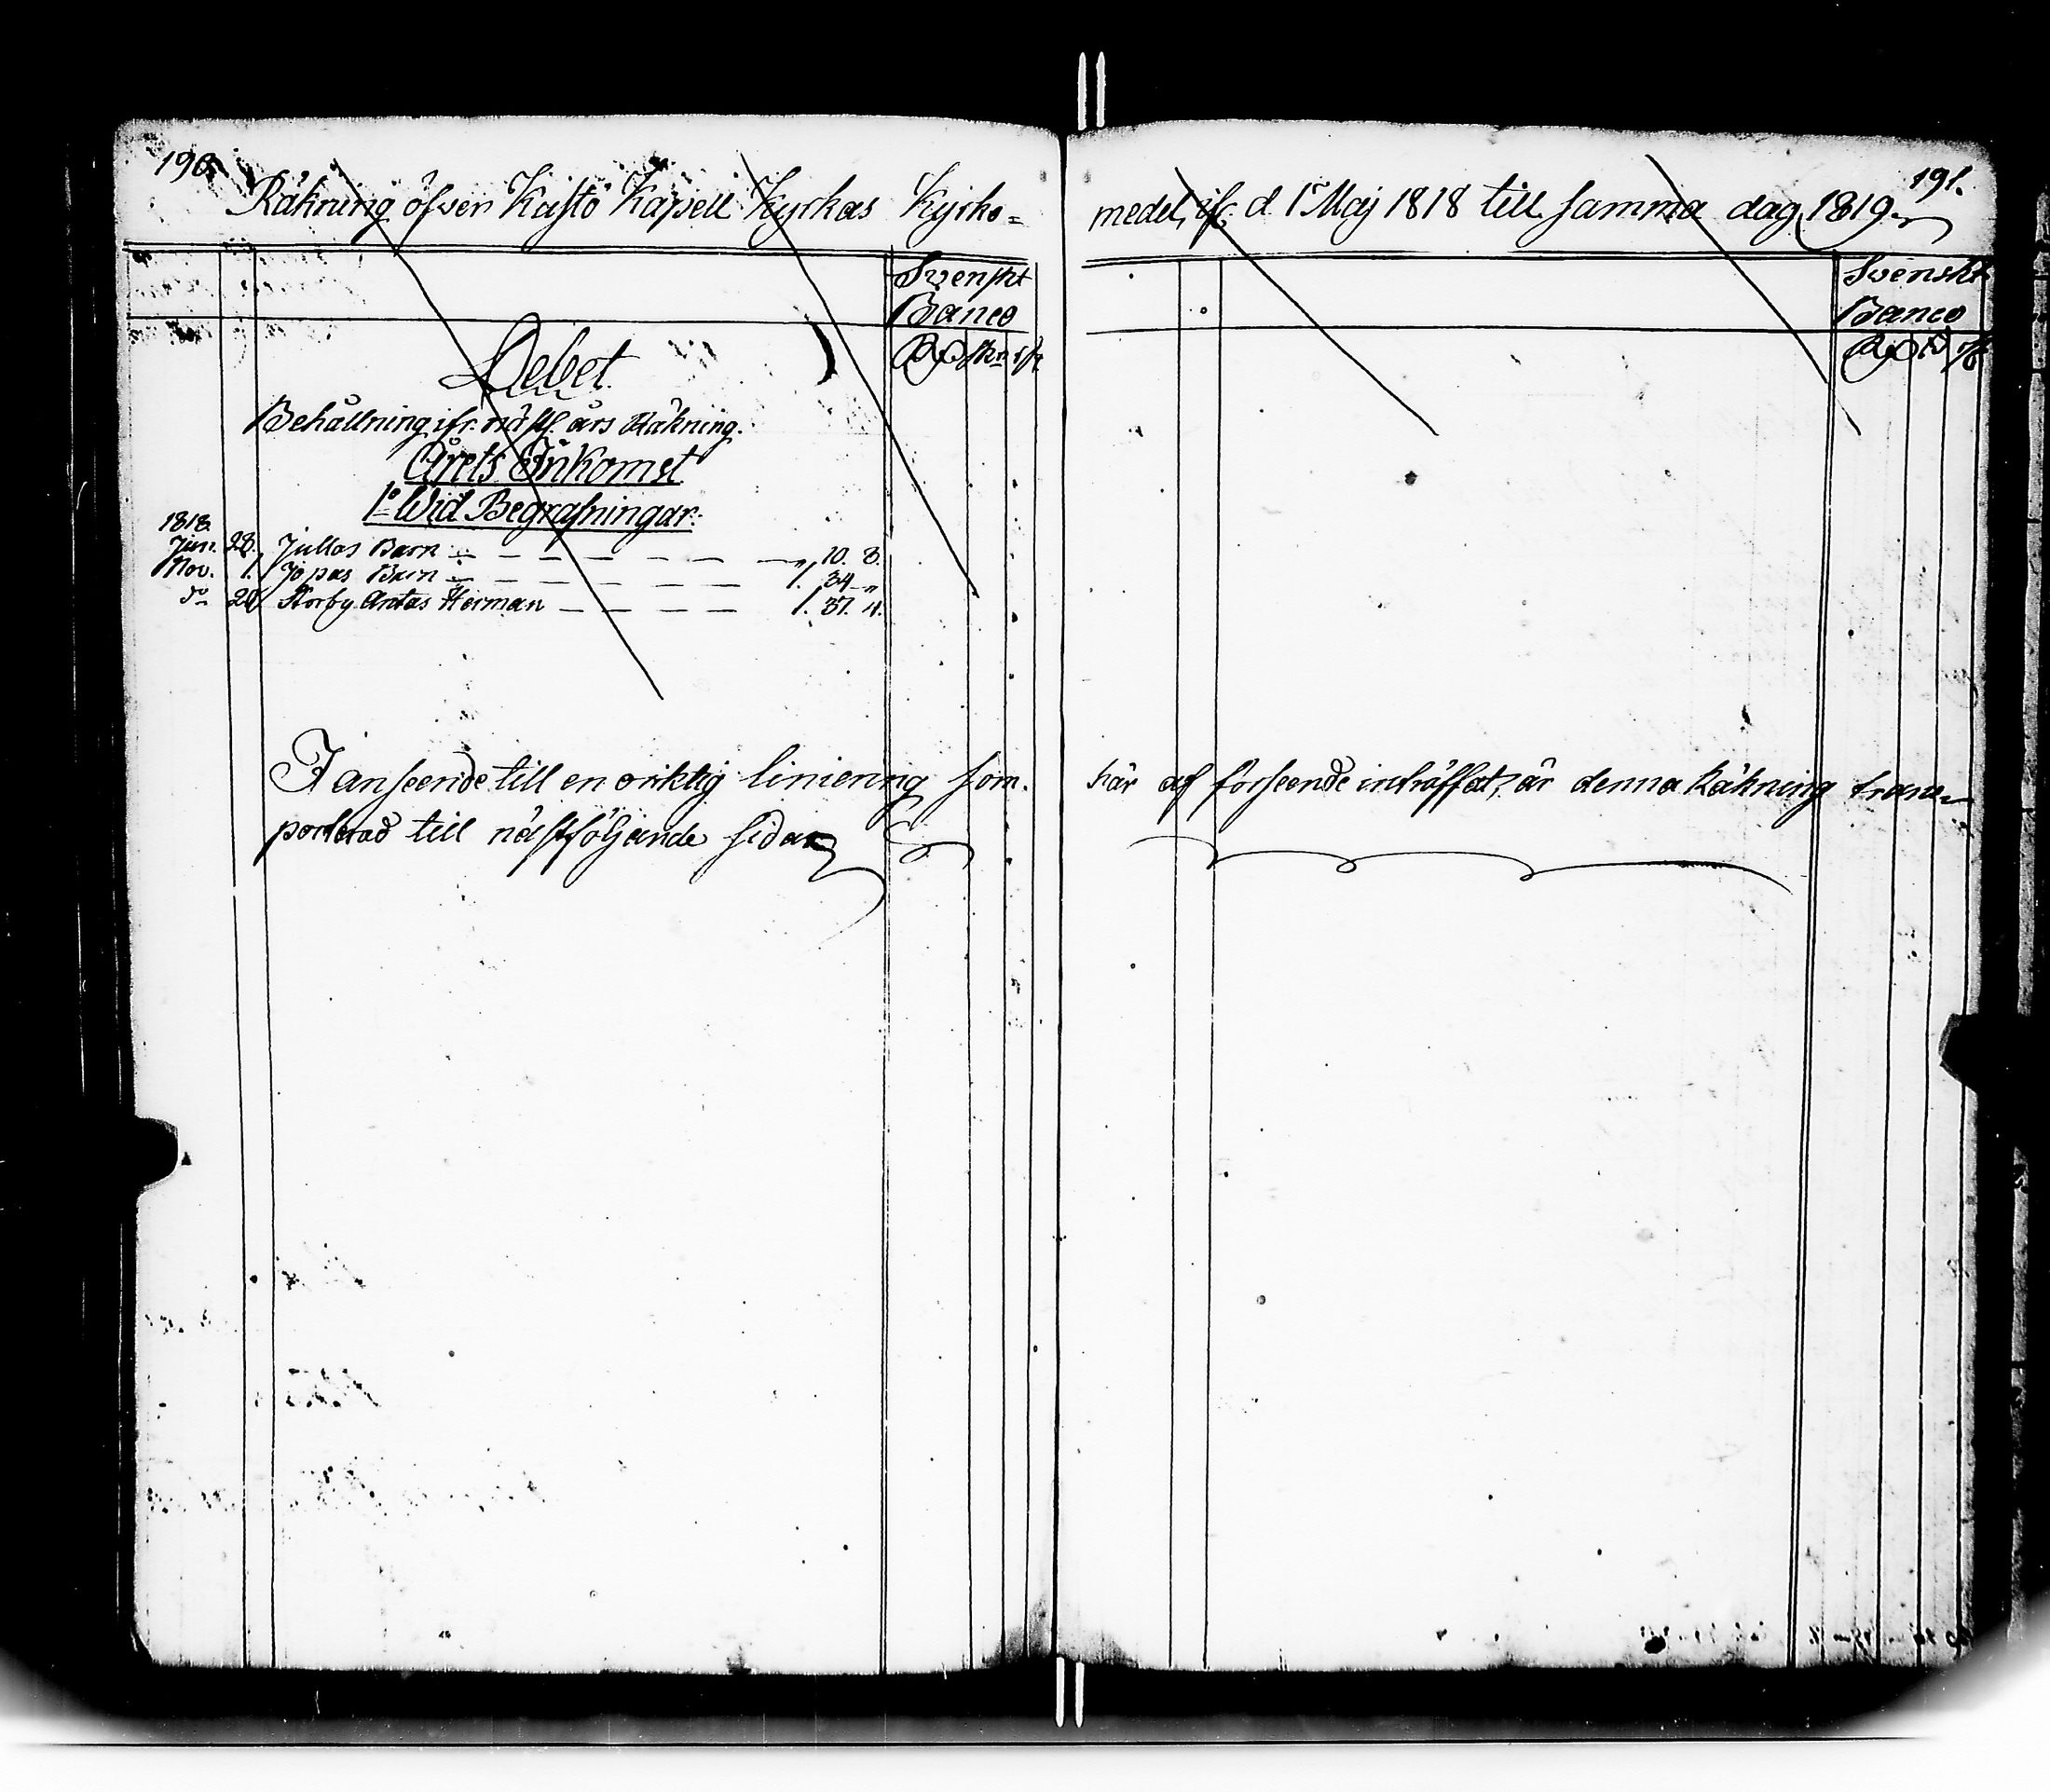 190.
Räkning öfver Kaſtö Kapell Kyrkas Kyrko=
Svenſkt
Banco
Debet.
Behållning ifr. näſtl. års Räkning.
Årets Inkomst
1º Wid Begrafningar:
1818.
Jun. 28. Jullas Barn — — — — — — „ 10. 8.
Nov. 1. Jopas Barn — — — — — — 1. 34 „
dº 29 Storby Antas Herman — — — — 1. 37. 4.
I anſeende till en oriktig liniering ſom
porterad till näſtföljande ſidan
191.
medel, ifr. d. 1 Maj 1818 till ſamma dag 1819.
Svenskt
Banco
här af förſeende inträffat, är denna Räkning trans-